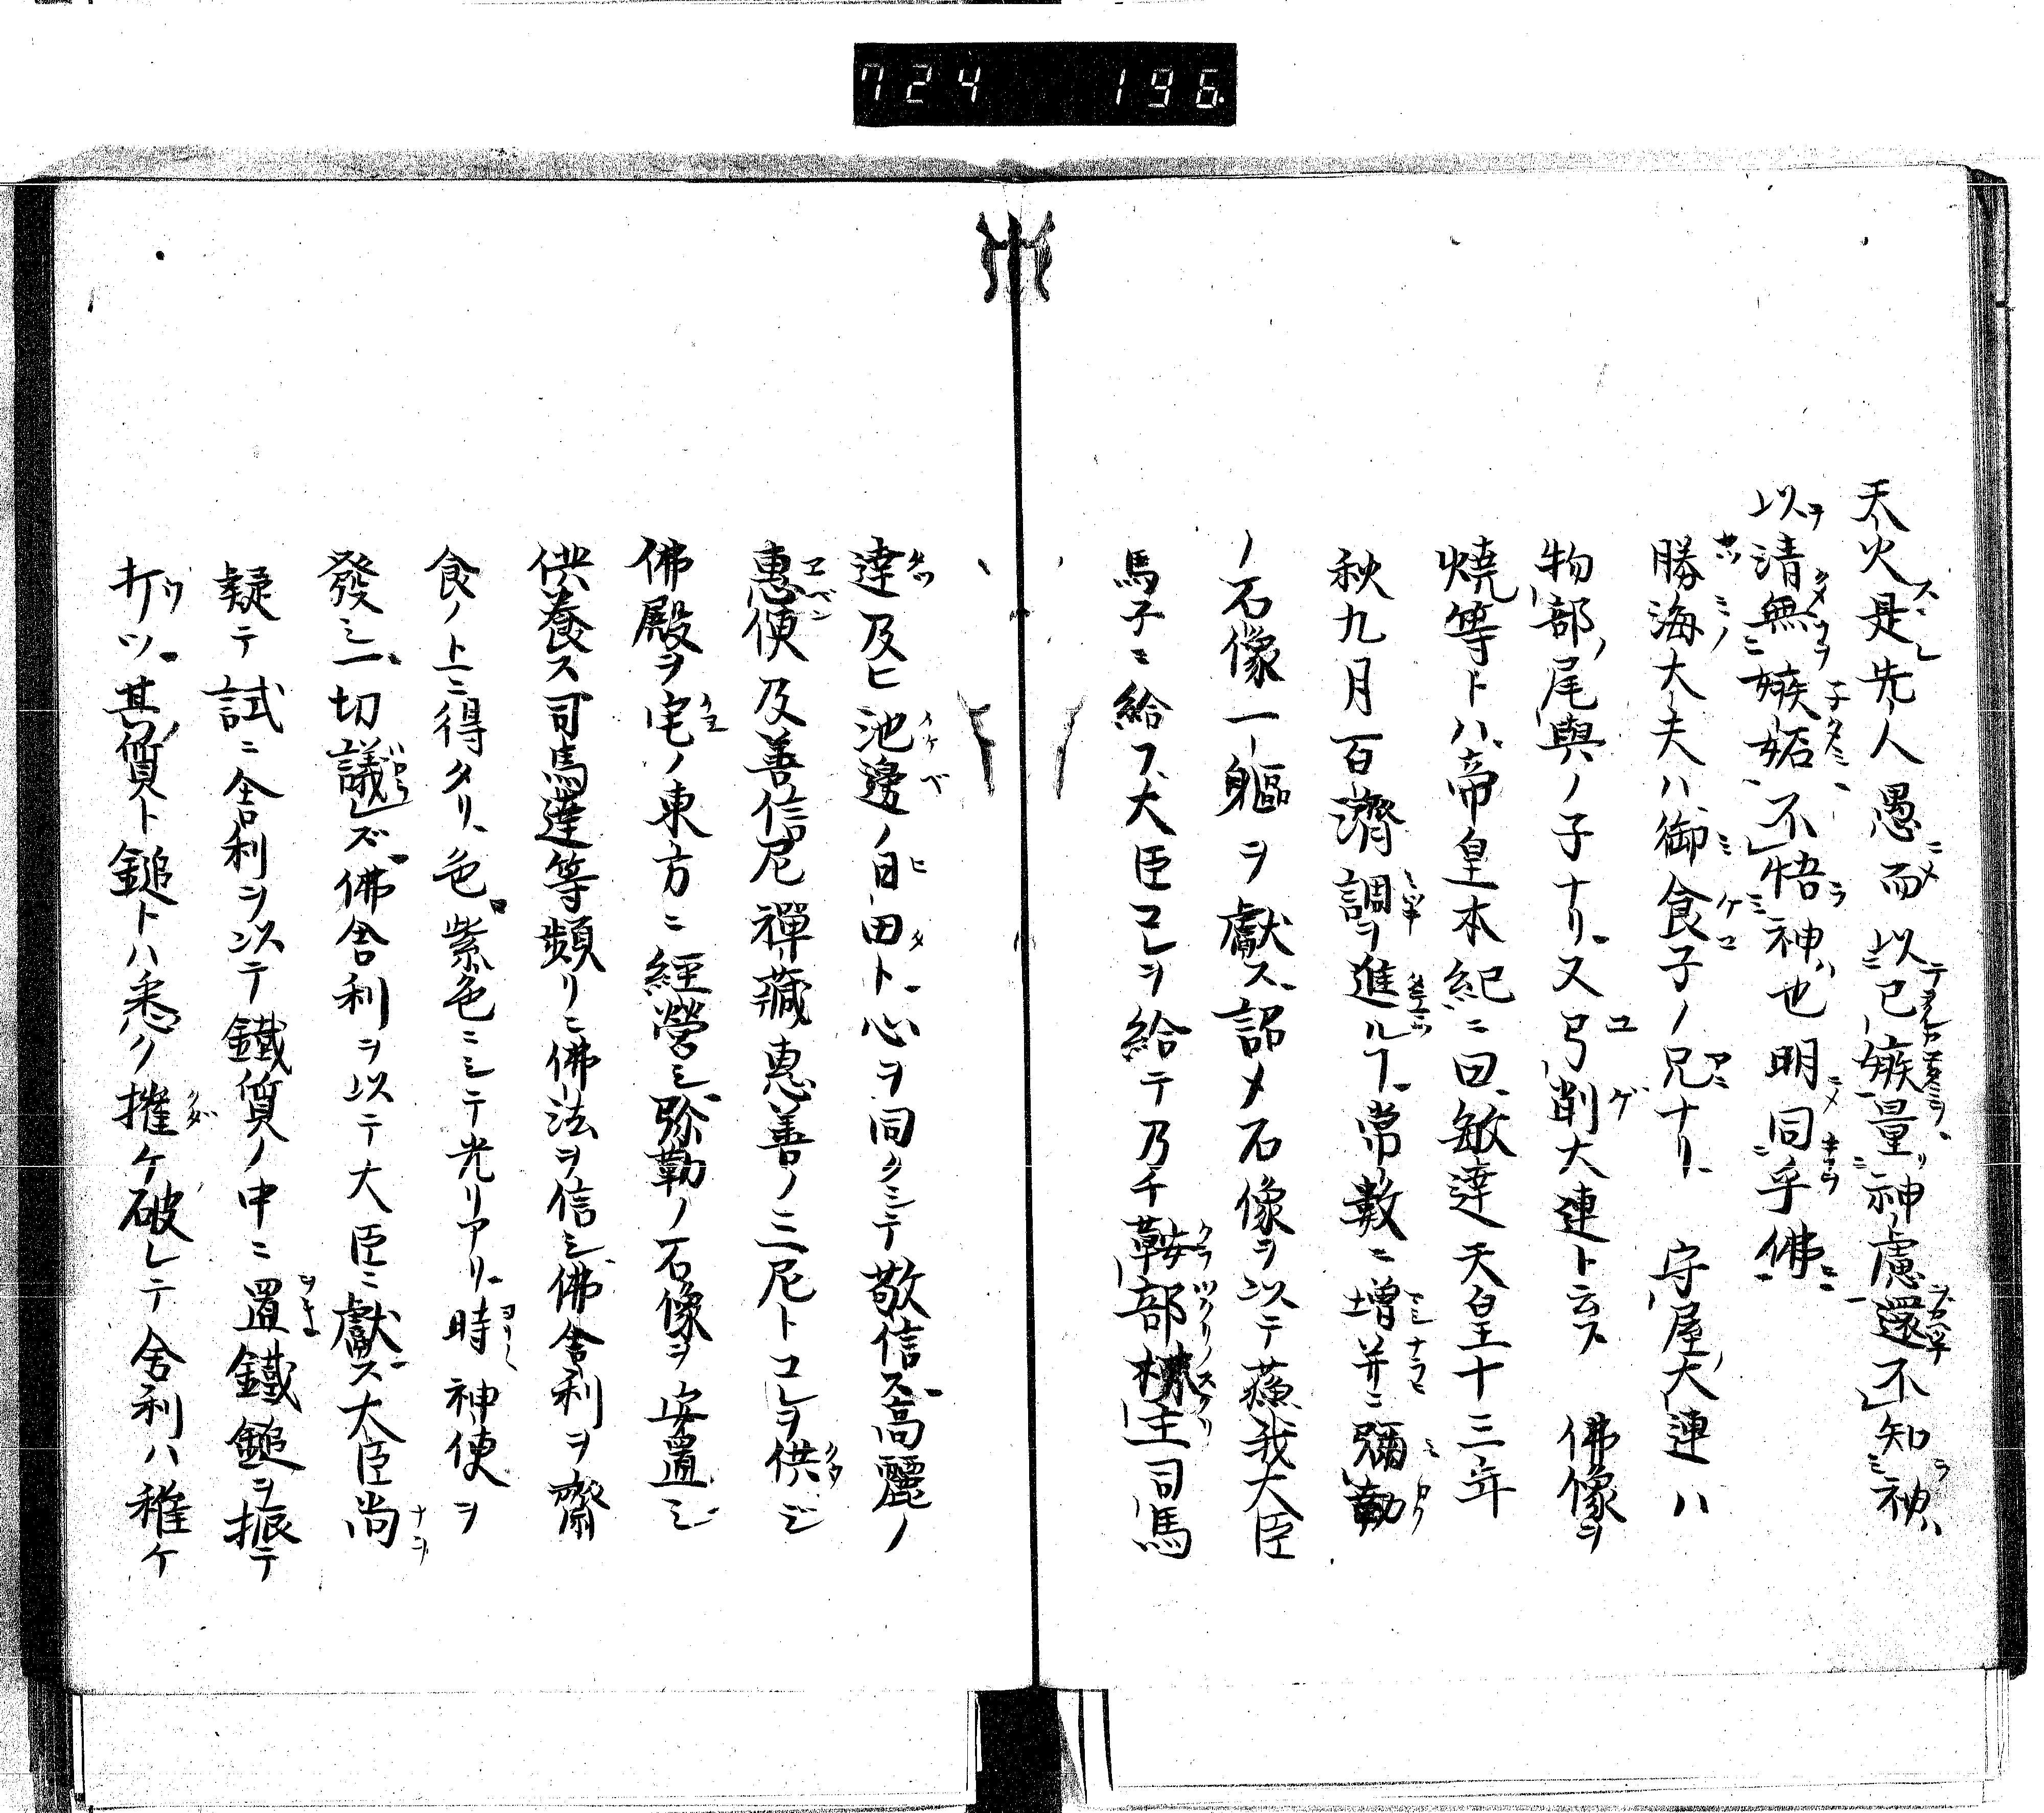 724 196.
天火是先人愚而以己嫉量神慮還不知神
以清無嫉妬不悟神也明同乎佛
勝海大夫ハ御食子ノ兄ナリ 守屋大連ハ
物部ノ尾輿ノ子ナリ又弓削大連ト云ス 佛像ヲ
燒等トハ帝皇本紀ニ曰敏達天皇十三年
秋九月百濟調ヲ進ルヿ常ノ數ニ増并ニ彌勒
ノ石像一軀ヲ獻ス詔メ石像ヲ以テ蘓我大臣
馬子ニ給フ大臣コレヲ給テ乃チ鞍部 司馬
達及ヒ池邊ノ日田ト心ヲ同クシテ敬信ス高麗ノ
惠便及善信尼禪藏惠善ノ三尼トコレヲ供シ
佛殿ヲ宅ノ東方ニ經營シ弥勒ノ石像ヲ安置シ
供養ス司馬達等頻リニ佛法ヲ信シ佛舎利ヲ齋
食ノ上ニ得タリ色紫色ニシテ光リアリ時神使ヲ
發シ一切議レズ佛舎利ヲ以テ大臣ニ獻ス大臣尚
疑テ試ニ舎利ヲ以テ鐵質ノ中ニ置鐵鎚ヲ振テ
打ツ其質ト鎚トハ悉ク摧ケ破レテ舎利ハ稚ケ